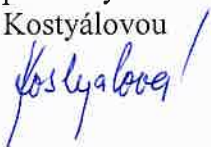 Kostyálovou
Kostyalová